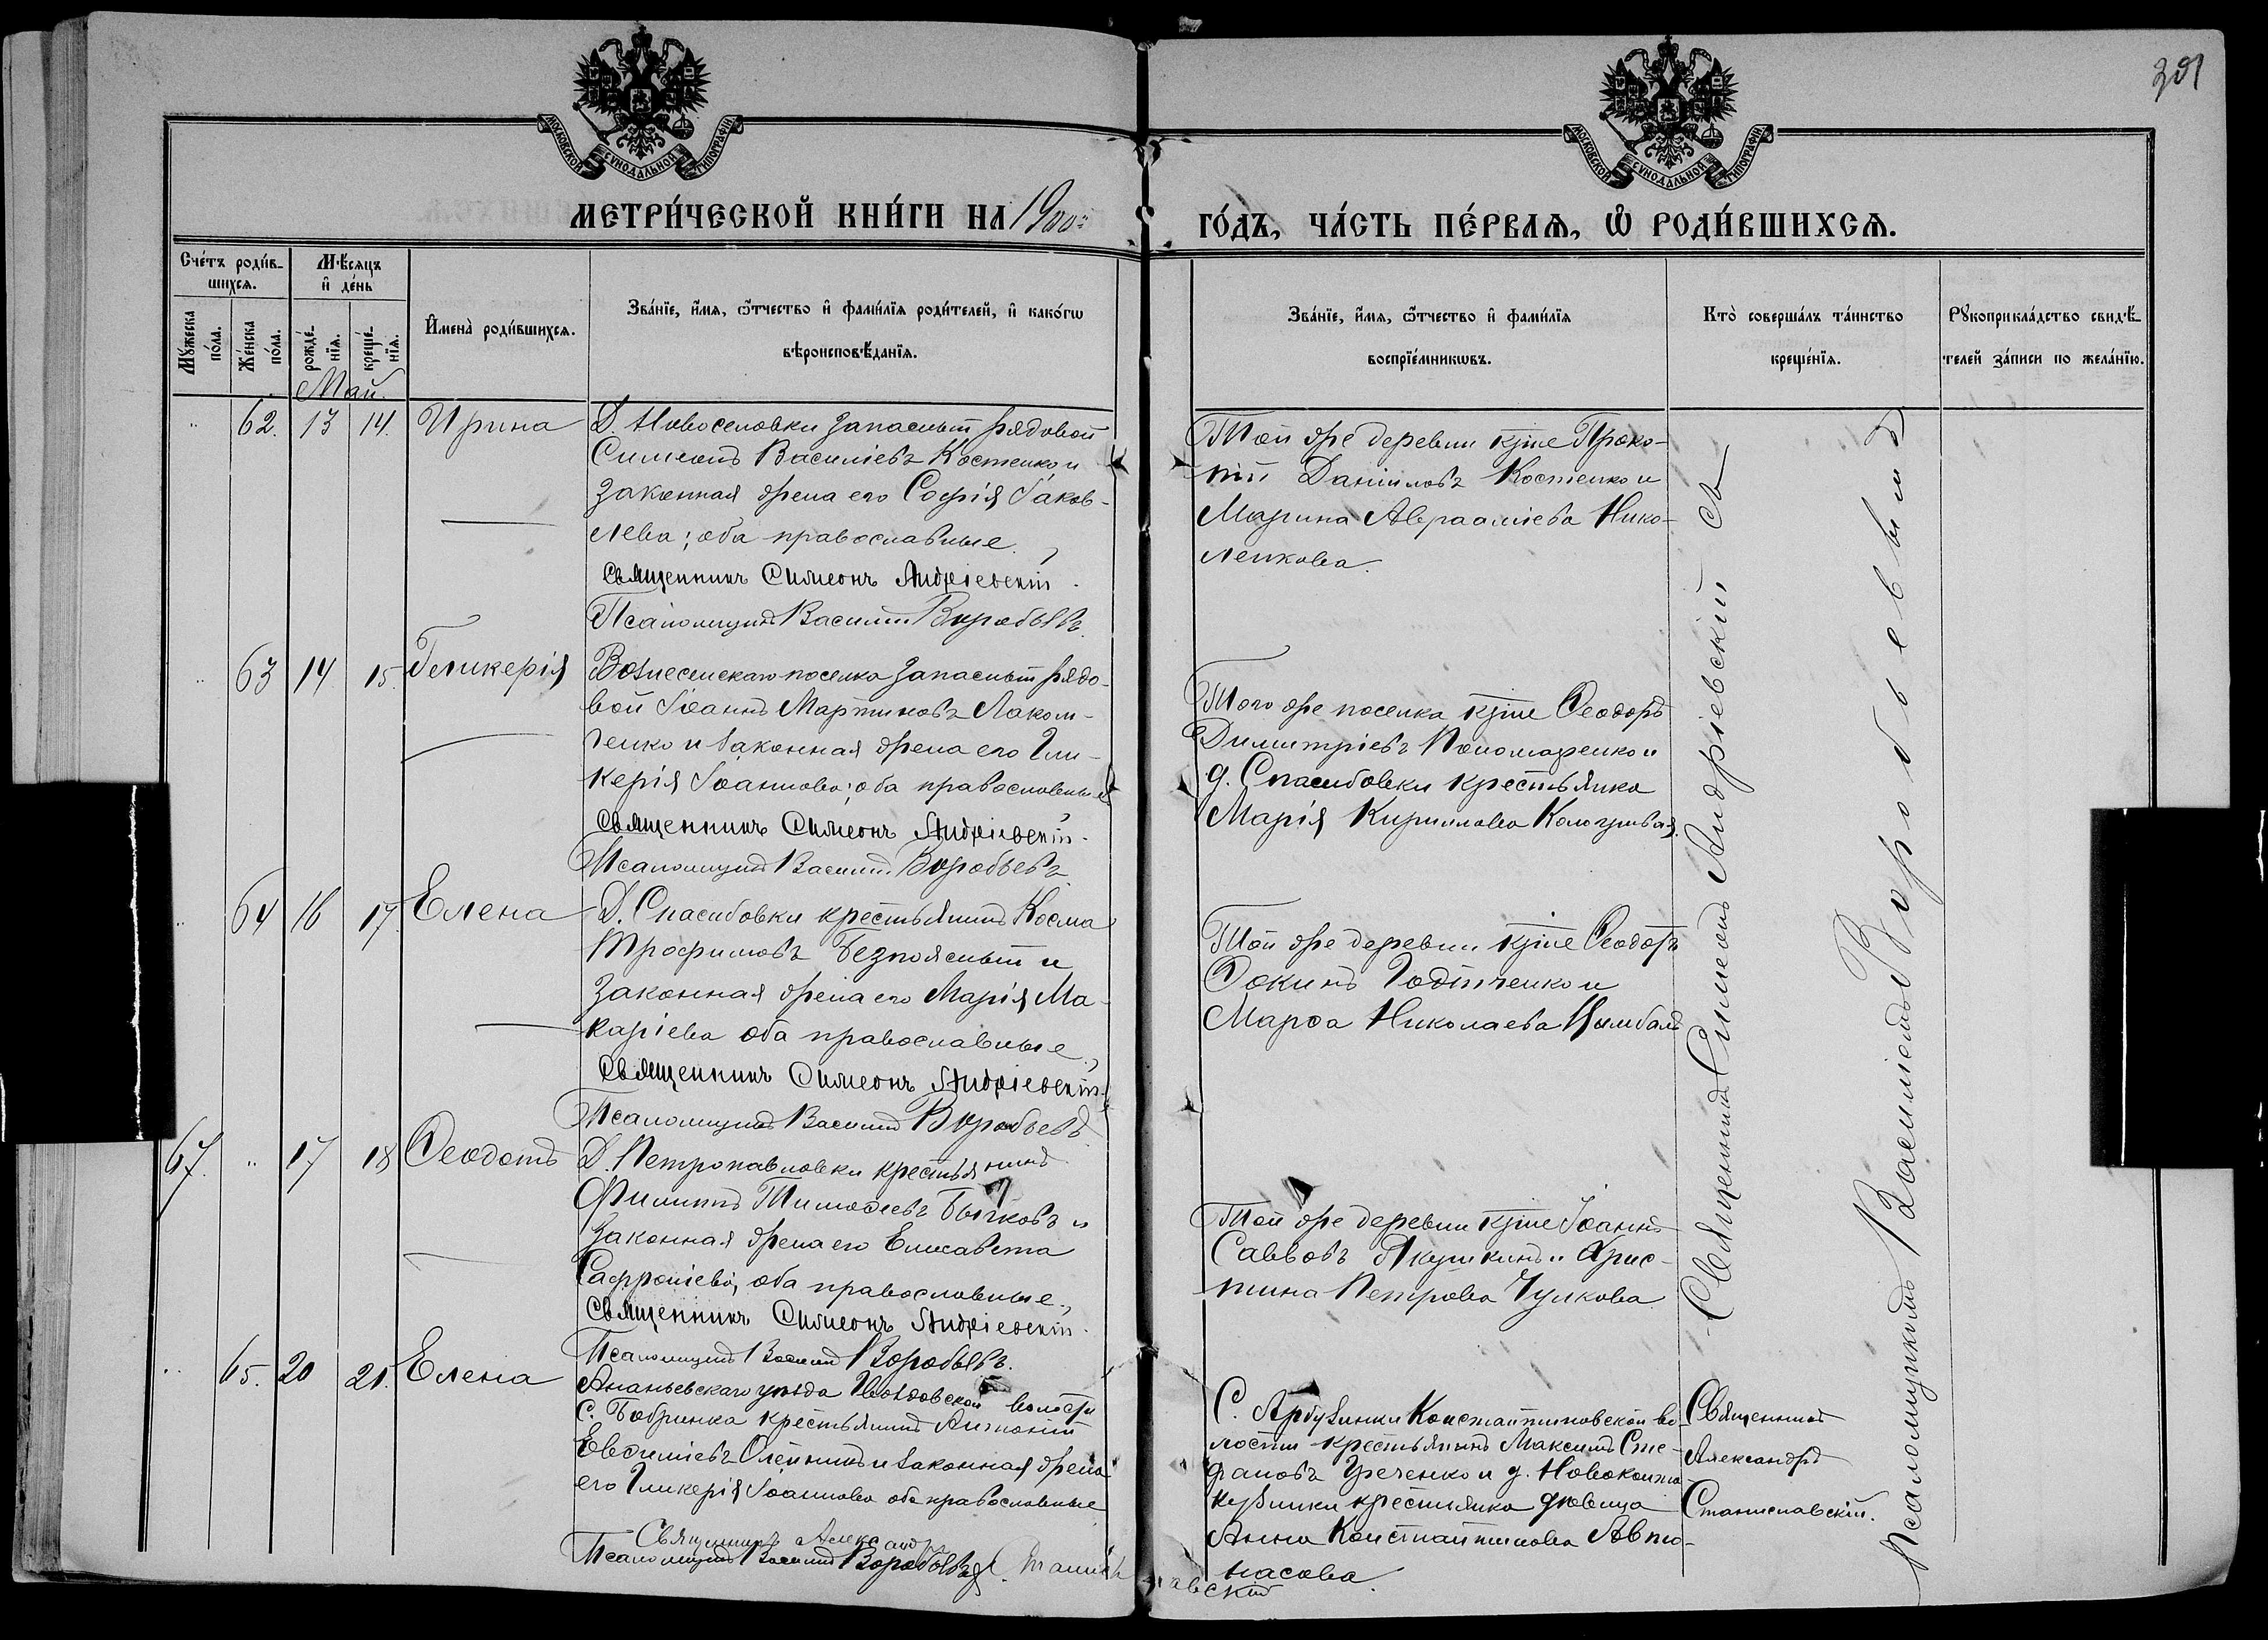 301
МОСКОВСКОЙ СѴНОДАЛЬНОЙ ТИПОГРАФІИ
МОСКОВСКОЙ СѴНОДАЛЬНОЙ ТИПОГРАФІИ
МЕТРИ́ЧЕСКОЙ КНИ́ГИ НА 1900
ГО́ДЪ, ЧА́СТЬ ПЕ́РВАѦ, Ѡ҆ РОДИ́ВШИХСѦ.
Сче́тъ роди́в-
шихсѧ.
Мѣ́сѧцъ
и҆ де́нь
Мꙋ́жеска
по́ла.
Же́нска
по́ла.
рожде́-
нїѧ.
креще́-
нїѧ.
И҆мена̀ роди́вшихсѧ.
Зва́нїе, и҆́мѧ, ѻ҆́тчество и҆ фами́лїѧ роди́телей, и҆ како́гѡ
вѣроисповѣ́данїѧ.
Зва́нїе, и҆́мѧ, ѻ҆́тчество и҆ фами́лїѧ
воспрїе́мникѡвъ.
Кто̀ соверша́лъ та́инство
креще́нїѧ.
Рꙋкоприкла́дство свидѣ́-
телей за́писи по жела́нїю.
Май.
62. 13 14. Ирина
Д. Новоселовки запасный рядовой
Симеонъ Василіевъ Костенко и
законная жена его Софія Іаков-
лева; оба православные.
Священникъ Симеонъ Андріевскій.
Псаломщикъ Василій Воробьевъ.
Той же деревни кр-не Проко-
пій Даніиловъ Костенко и
Марина Авраамiева Нико-
ленкова.
63 14 15. Гликерія
Вознесенскаго поселка запасный рядо-
вой Іоаннъ Мартиновъ Лаком-
ченко и законная жена его Гли-
керія Іоаннова; оба православные
Священникъ Симеонъ Андріевскій.
Псаломщикъ Василій Воробьевъ.
Того же поселка кр-не Ѳеодоръ
Димитріевъ Пономаренко и
д. Спасибовки крестьянка
Марія Кириллова Кологривая.
64 16 17. Елена
Д. Спасибовки крестьянинъ Косма
Трофимовъ Безпоясный и
законная жена его Марія Ма-
каріева оба православные.
Священникъ Симеонъ Андріевскій.
Псаломщикъ Василій Воробьевъ.
Той же деревни кр-не Ѳеодоръ
Ѳокинъ и
Марѳа Николаева Цымбалъ
67. 17 18 Ѳеодотъ
Д. Петропавловки крестьянинъ
Филиппъ Тимоѳеевъ Бычковъ и
законная жена его Елисавета
Сафроніева, оба православные.
Священникъ Симеонъ Андріевскій.
Псаломщикъ Василій Воробьевъ.
Той же деревни кр-не Іоаннъ
Саввовъ Якушкинъ и Хрис-
тина Петрова Чулкова
65. 20 21. Елена
Ананьевскаго уѣзда Гвоздовской волости
с. Бобринка крестьянинъ Антоній
Евѳиміевъ Олейникъ и законная жена
его Гликерія Іоаннова оба православные
Священникъ Александръ Станиславскій
Псаломщикъ Василій Воробьевъ
С. Арбузинки Константиновской во-
лости крестьянинъ Максимъ Сте-
фановъ Греченко и д.
крестьянка дѣвица
Анна Константинова Авто-
насова.
Священникъ
Александръ
Станиславскій.
Священникъ Симеонъ Андріевскій съ
Псаломщикомъ Василіемъ Воробьевымъ